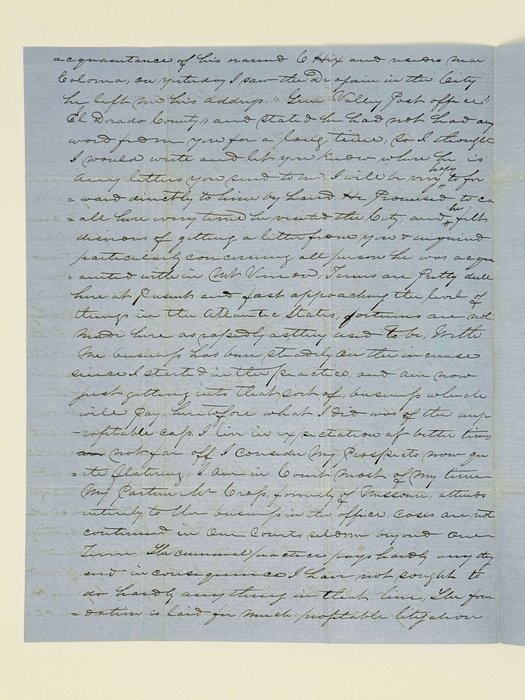 acquaintance of his named C Hix and resides near
Coloma, on yesterday I saw the Dr again in the City
he left me his address, "Green Valley Post office"
El Drado County" and stated he had not had any
word from you for a long time, So I thought
I would write and let you know where he is
Any letters you send to me, I will be very happy to for
= ward directly to him by hand He Promised to ca
= all here every time he visited the City, and he felt
desirous of getting a letter from you & enquired
particularly concerning all person he was acqu
= ainted with in Mt Vernon, Times are Pretty dull
here at Present and fast approaching the level of
things in the Atlantic States, fortunes are not
made here as rapedly as they used to be, With
Me business has been steadily on the increase
since I started in the practice, and am now
just getting into that sort of business which
will pay, heretofore what I did was of the unp
-rofitable cast. I live in expectation of better time
not far off I consider my Prospects now qu
= ite flatering, I am in Court most of my time
My Partner Mr Cross, formerly of Missouri, attends
entirely to the business in the office. Cases are not
continued in our Courts seldom beyond one
Term. The criminal practice pays hardly any thing
and in consequence I have not sought to
do hardly anything in that line, The foun
= dation is laid for much profitable litigation